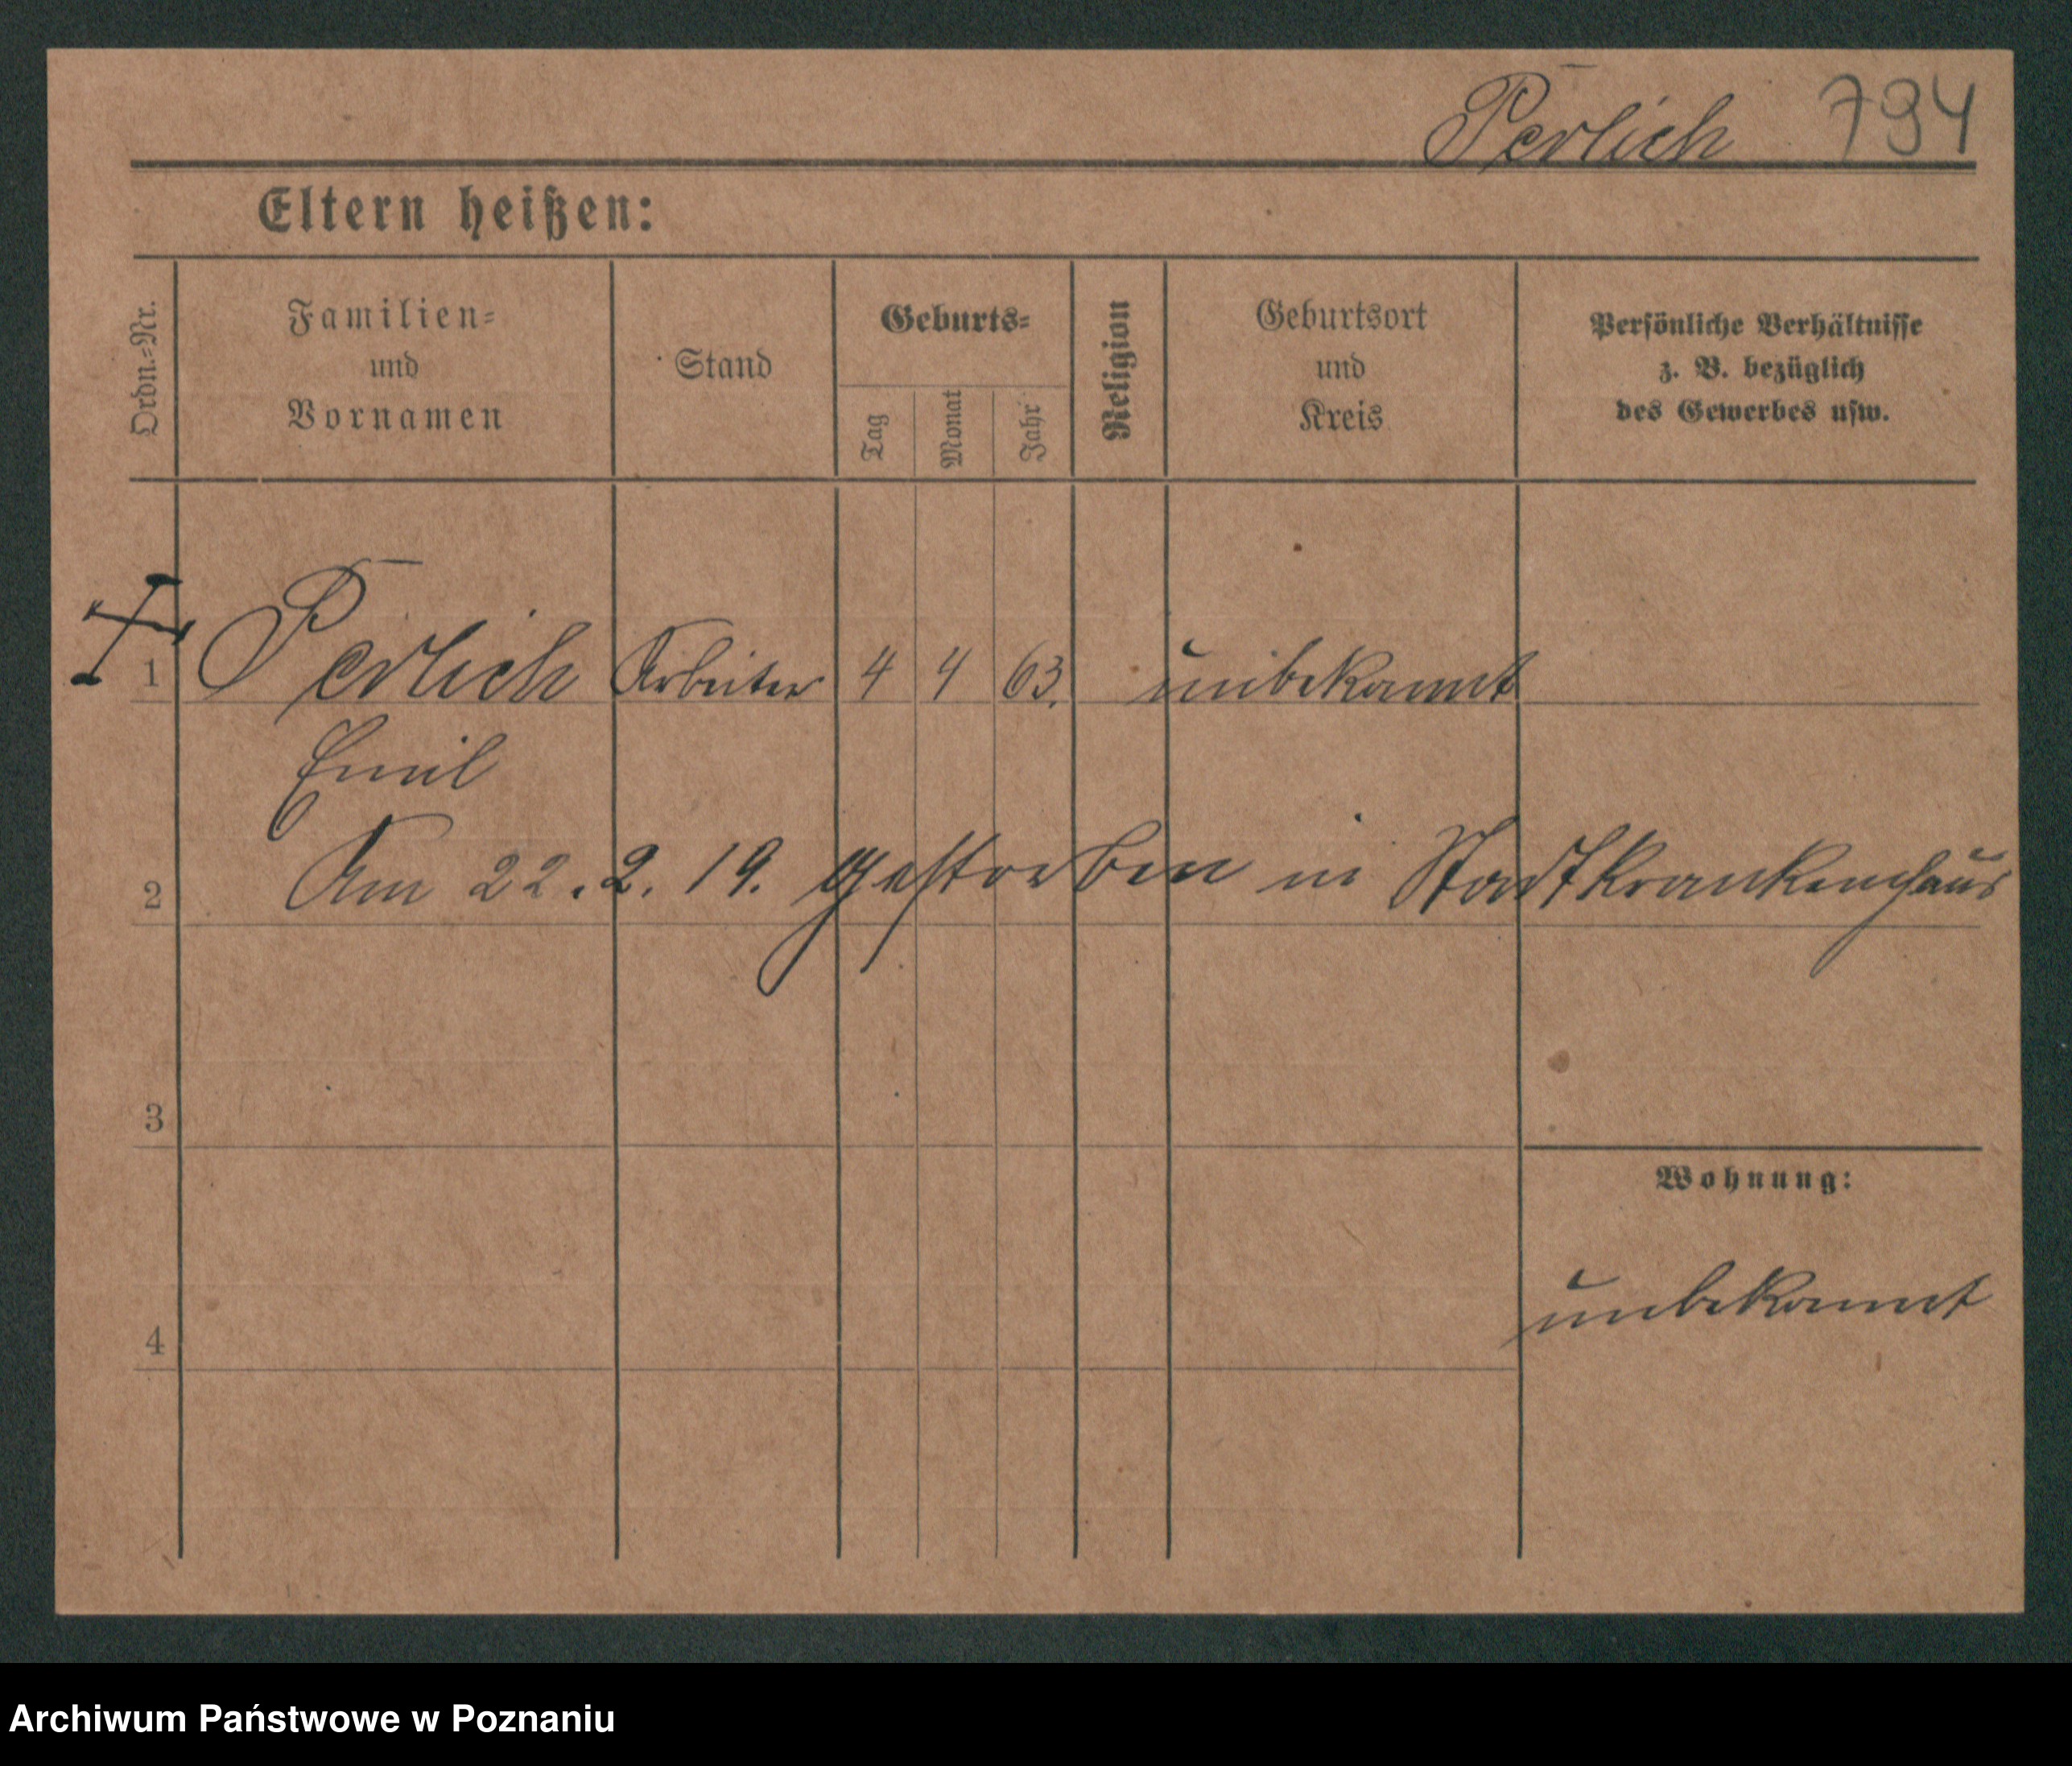 Perlich 794
Eltern heißen:
Ordn.=Nr.
Familien=
und
Vornamen
Stand
Geburts=
Tag
Monat
Jahr
Religion
Geburtsort
und
Kreis
Persönliche Verhältnisse
z. B. bezüglich
des Gewerbes usw.
1 Perlich Arbeiter 4 4 63. unbekannt
Emil
2 Am 22.2.19. gestorben in Stadtkrankenhaus
3
Wohnung:
unbekannt
4
Archiwum Państwowe w Poznaniu